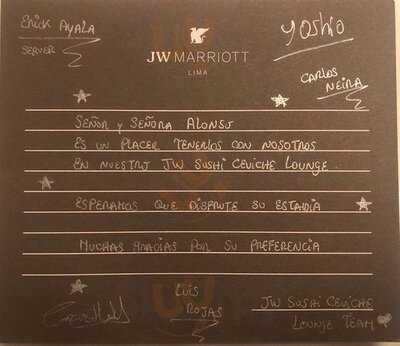 Erick Ayala
Server
Yoshio
JW MARRIOTT
LIMA
Carlos
Neira
Señor y Señora Alonso
Es un placer tenerlos con nosotros
En nuestro JW Sushi Ceviche Lounge.
Esperamos que disfrute su estadia
Muchas gracias por su preferencia
Luis
Rojas
JW Sushi Ceviche
Lounge Team